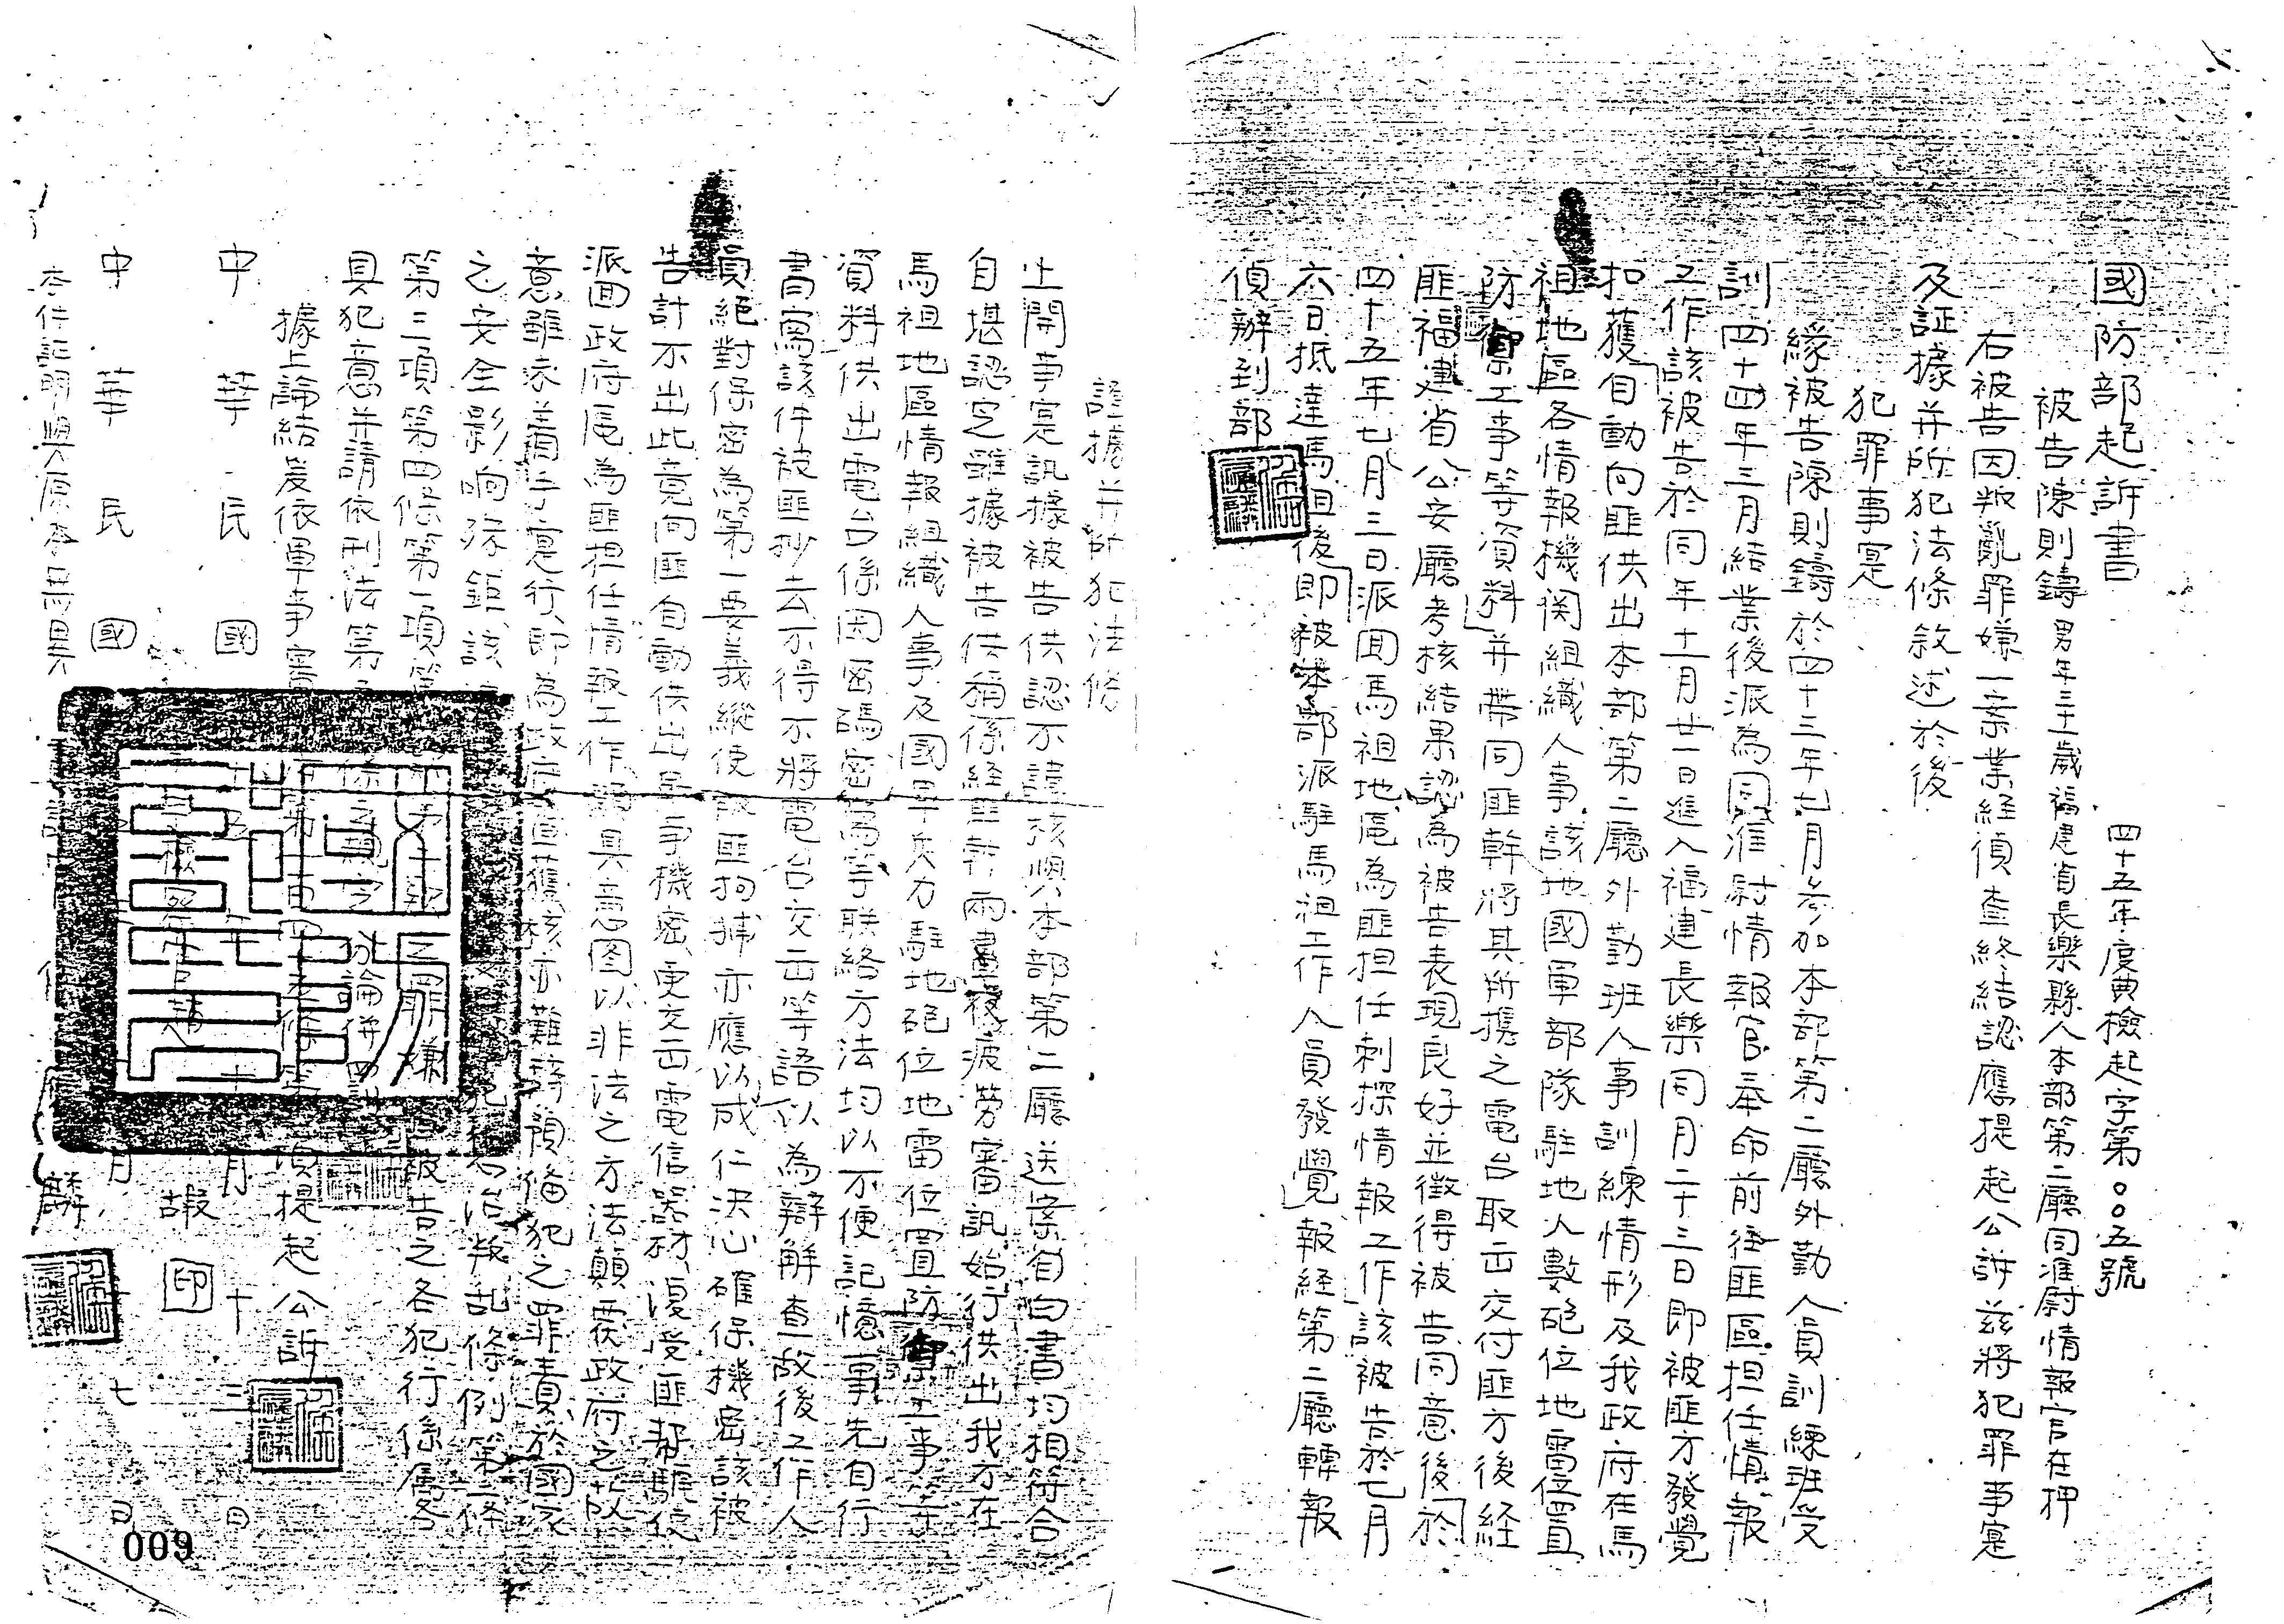 國防部起訴書
四十五年度典檢起字第〇〇五號
被告陳則鑄男年三十歲福建省長樂縣人本部第二廳同准尉情報官在押
右被告因叛亂罪嫌一案業経偵查終結認應提起公訴茲將犯罪事寔
及証據并所犯法條敘述於後
犯罪事寔
緣被告陳則鑄於四十三年七月参加本部第二廳外勤人員訓練班受
訓四十四年三月結業後派為同准尉情報官奉命前往匪區担任情報
工作該被告於同年十一月廿一日進入福建長樂同月二十三日即被匪方發覺
扣獲自動向匪供出本部第二廳外勤班人事訓練情形及我政府在馬
祖地區各情報機関組織人事該地國軍部隊駐地人數砲位地雷位置
防禦工事等資料并帶同匪幹將其所携之電台取出交付匪方後経
匪福建省公安廳考核結果認為被告表現良好並徵得被告同意後於
四十五年七月三日派囬馬祖地區為匪担任刺探情報工作該被告於七月
六日抵達馬祖後即被本部派駐馬祖工作人員發覺報経第二廳轉報
偵辦到部
證據并所犯法條
上開事寔訊據被告供認不諱核與本部第二廳送案自白書均相符合
自堪認定雖據被告供稱係経匪 兩晝夜疲勞審訊始行供出我方在
馬祖地區情報組織人事及國軍兵力駐地砲位地雷位置防禦工事等
資料供出電台係因密碼密 等联絡方法均以不便記憶事先自行
書寫該件被匪抄去不得不將電台交出等語以為辯解查敵後工作人
員絕對保密為第一要義縱使 匪拘捕亦應以成仁決心確保機密該被
告計不出此竟向匪自動供出軍事機密更交出電信器材復受匪幫驅使
派囬政府區為匪担任情報工作 具意图以非法之方法顛覆政府之故
意雖未着手寔行即為政府 獲核亦難辞預備犯之罪責於國家
之安全影响殊鉅該 犯 治叛乱條例第二條
第三項第四條第一項第 之罪嫌 被告之各犯行係屬
具犯意并請依刑法第 條之規 分論併
據上論結爰依軍事審 第一百四十 條 項提起公訴
中華民國 五年 十月十三日
印
中華民國 月 七日
本件証明與原本無異
009